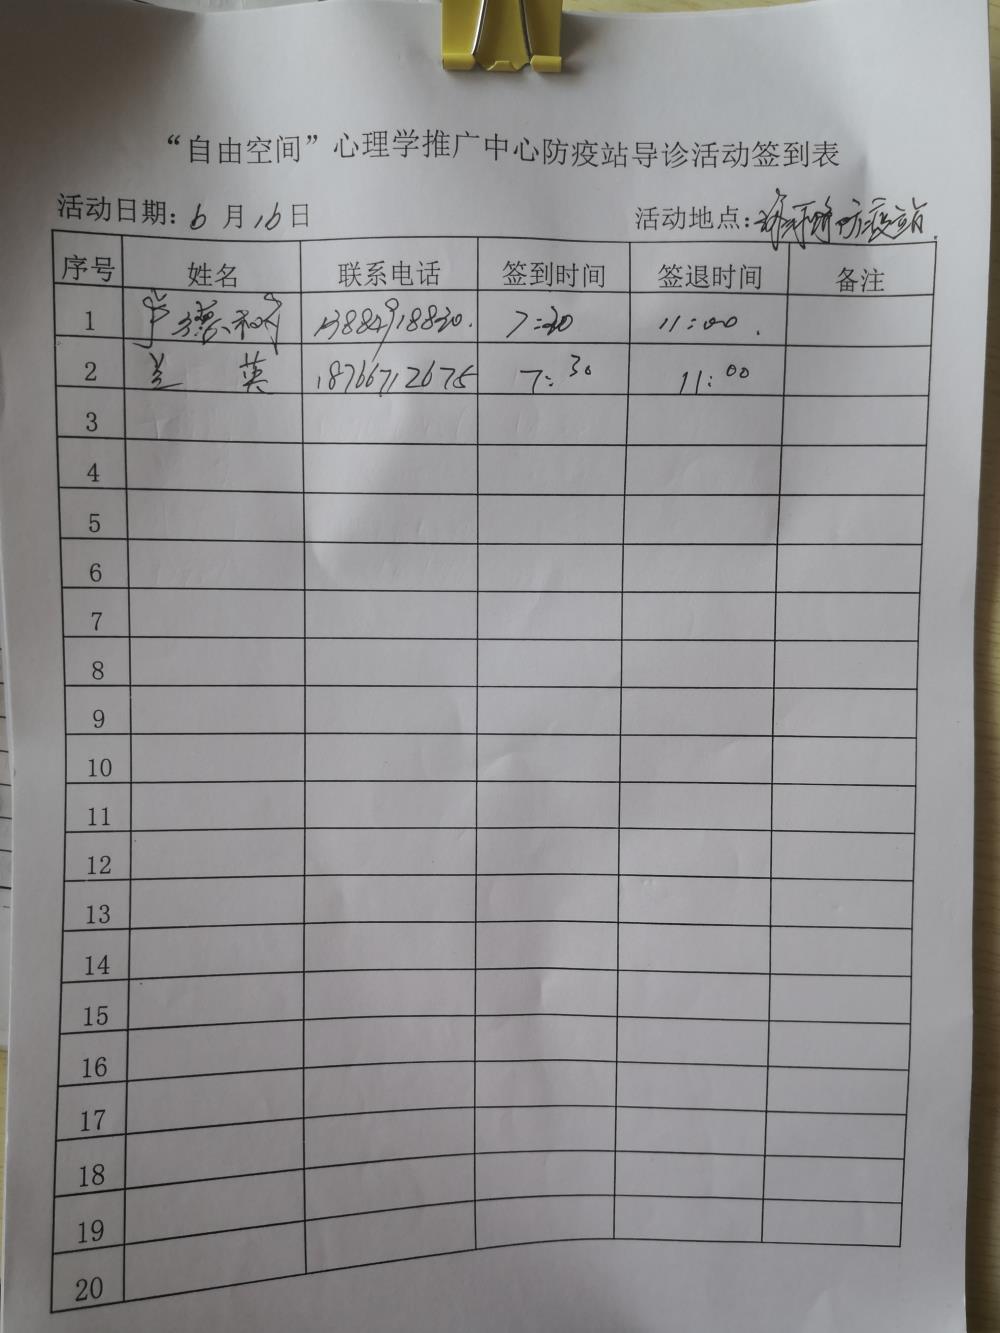 “自由空间”心理学推广中心防疫站导诊活动签到表
活动日期：6 月 16 日 活动地点：防疫站
序号 姓名 联系电话 签到时间 签退时间 备注
1 13884918830. 7:30 11:00.
2 兰英 18766712675 7:30 11:00
3
4
5
6
7
8
9
10
11
12
13
14
15
16
17
18
19
20